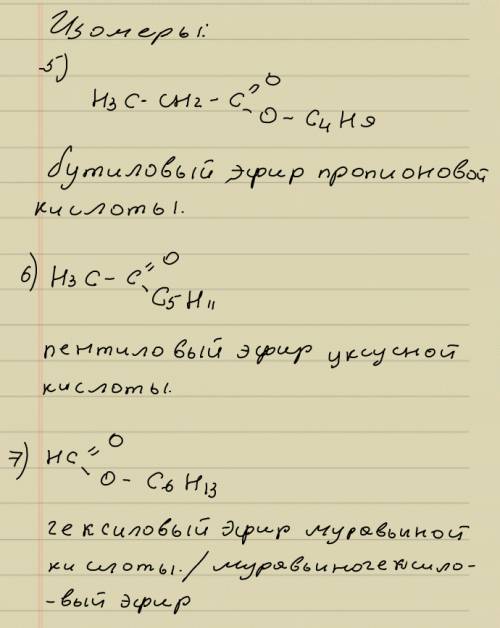 Изомеры:
5)
O
H3C - CH2 - C
O - C4H9
бутиловый эфир пропионовой
кислоты.
O
6) H3C - C
C5H11
пентиловый эфир уксусной
кислоты.
O
7) HC
O - C6H13
гексиловый эфир муравьиной
кислоты. / муравьиногексило-
-вый эфир